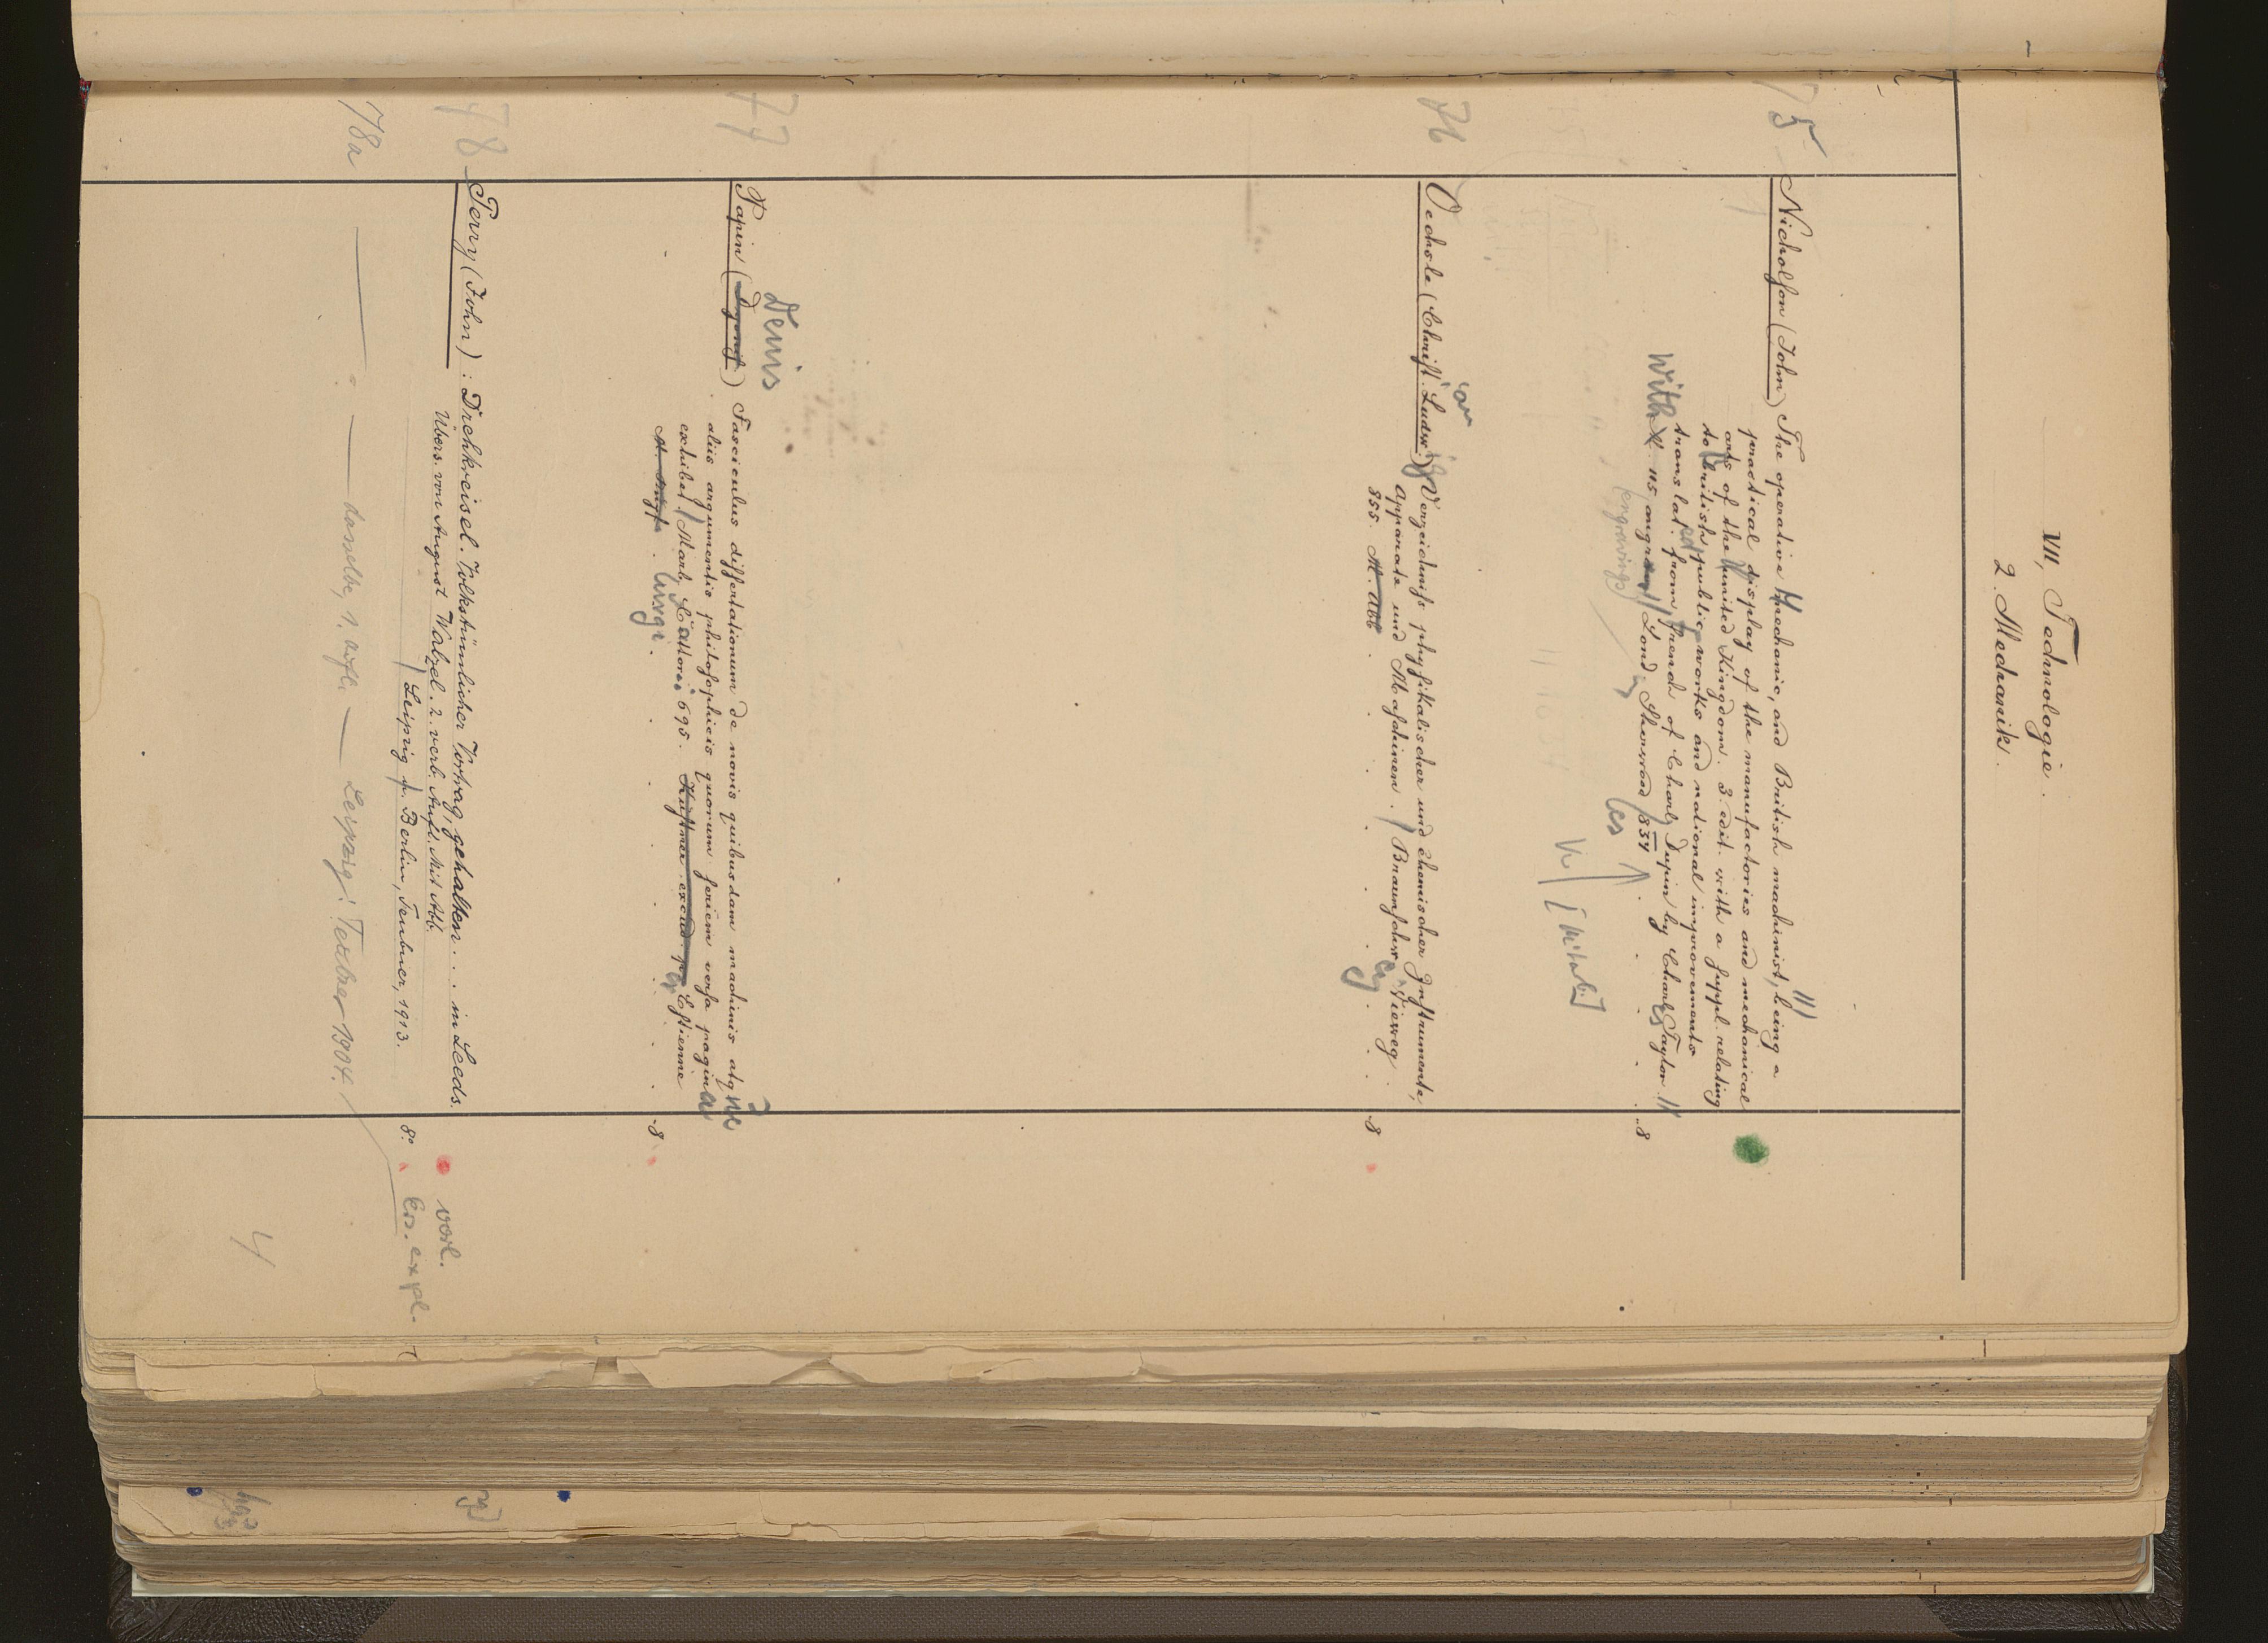 VII, Technologie.
2. Mechanik.
75
Nicholson (John) The operative Mechanic, and British machinist, being a
practical display of the manufactories and mechanical
arts of the United Kingdom. 3. edit. with a suppl. relating
to British public works and national improvements
translated from French of Charles Dupin by Charles Taylor.
With 115 engrav. Lond. Sherwood 834
8
[engravings]
76
Oechsle (Christian Ludwig) Verzeichniss physikalischer und chemischer Instrumente,
Apparate und Maschinen. Braunschweig, Vieweg
855. M. Abb.
8
77
Denis
Papin (Dyonis) Fasciculus dissertationum de novis quibusdam machinis atque
aliis argumentis philosophicis quorum seriem versa pagina
exhibet. Marb. Cattor. 695. Kürsner excud. Estienne
8
78
Perry (John): Drehkreisel. Volkstümlicher Vortrag, gehalten . . . in Leeds.
Übers. von August Walzel. 2. verb. Aufl. Mit Abb.
Leipzig u. Berlin, Teubner, 1913.
8°.
vorl.
Ers. expl.
78a
— " — dasselbe, 1. Aufl. — Leipzig: Teubner 1904.
4